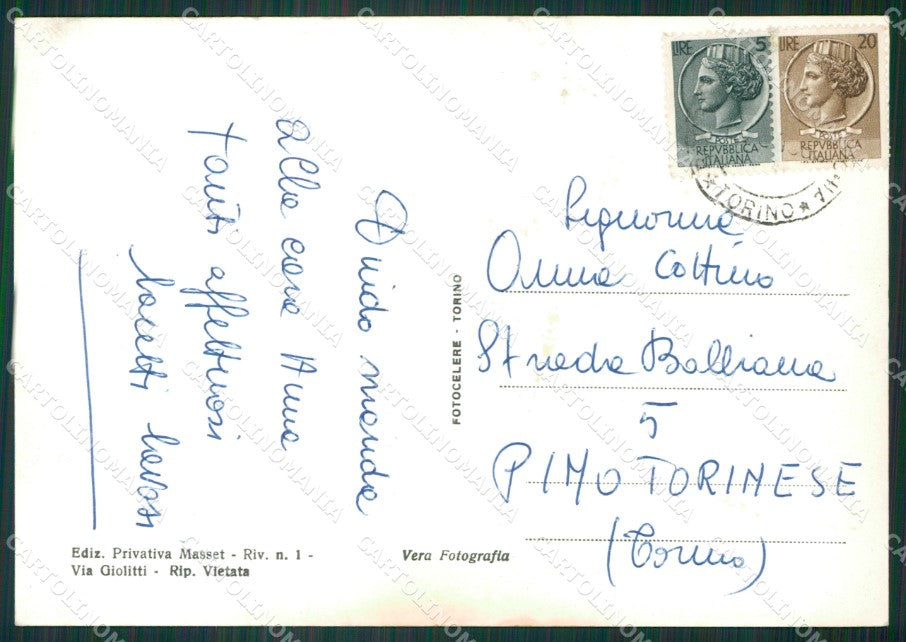 Guido manda
alla cara Anna
tanti affettuosi
bacetti bavosi
FOTOCELERE - TORINO
LIRE 5
REPVBBLICA
ITALIANA
LIRE 20
REPVBBLICA
ITALIANA
TORINO
Signorina
Anna Cottino
Strada Balbiana
5
PINO TORINESE
(Torino)
Ediz. Privativa Masset - Riv. n. 1 -
Via Giolitti - Rip. Vietata
Vera Fotografia
CARTOLINOMANIA